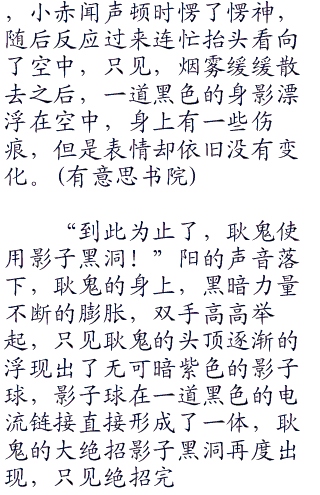 ，小赤闻声顿时愣了愣神，
随后反应过来连忙抬头看向
了空中，只见，烟雾缓缓散
去之后，一道黑色的身影漂
浮在空中，身上有一些伤
痕，但是表情却依旧没有变
化。(有意思书院)
“到此为止了，耿鬼使
用影子黑洞！”阳的声音落
下，耿鬼的身上，黑暗力量
不断的膨胀，双手高高举
起，只见耿鬼的头顶逐渐的
浮现出了无可暗紫色的影子
球，影子球在一道黑色的电
流链接直接形成了一体，耿
鬼的大绝招影子黑洞再度出
现，只见绝招完